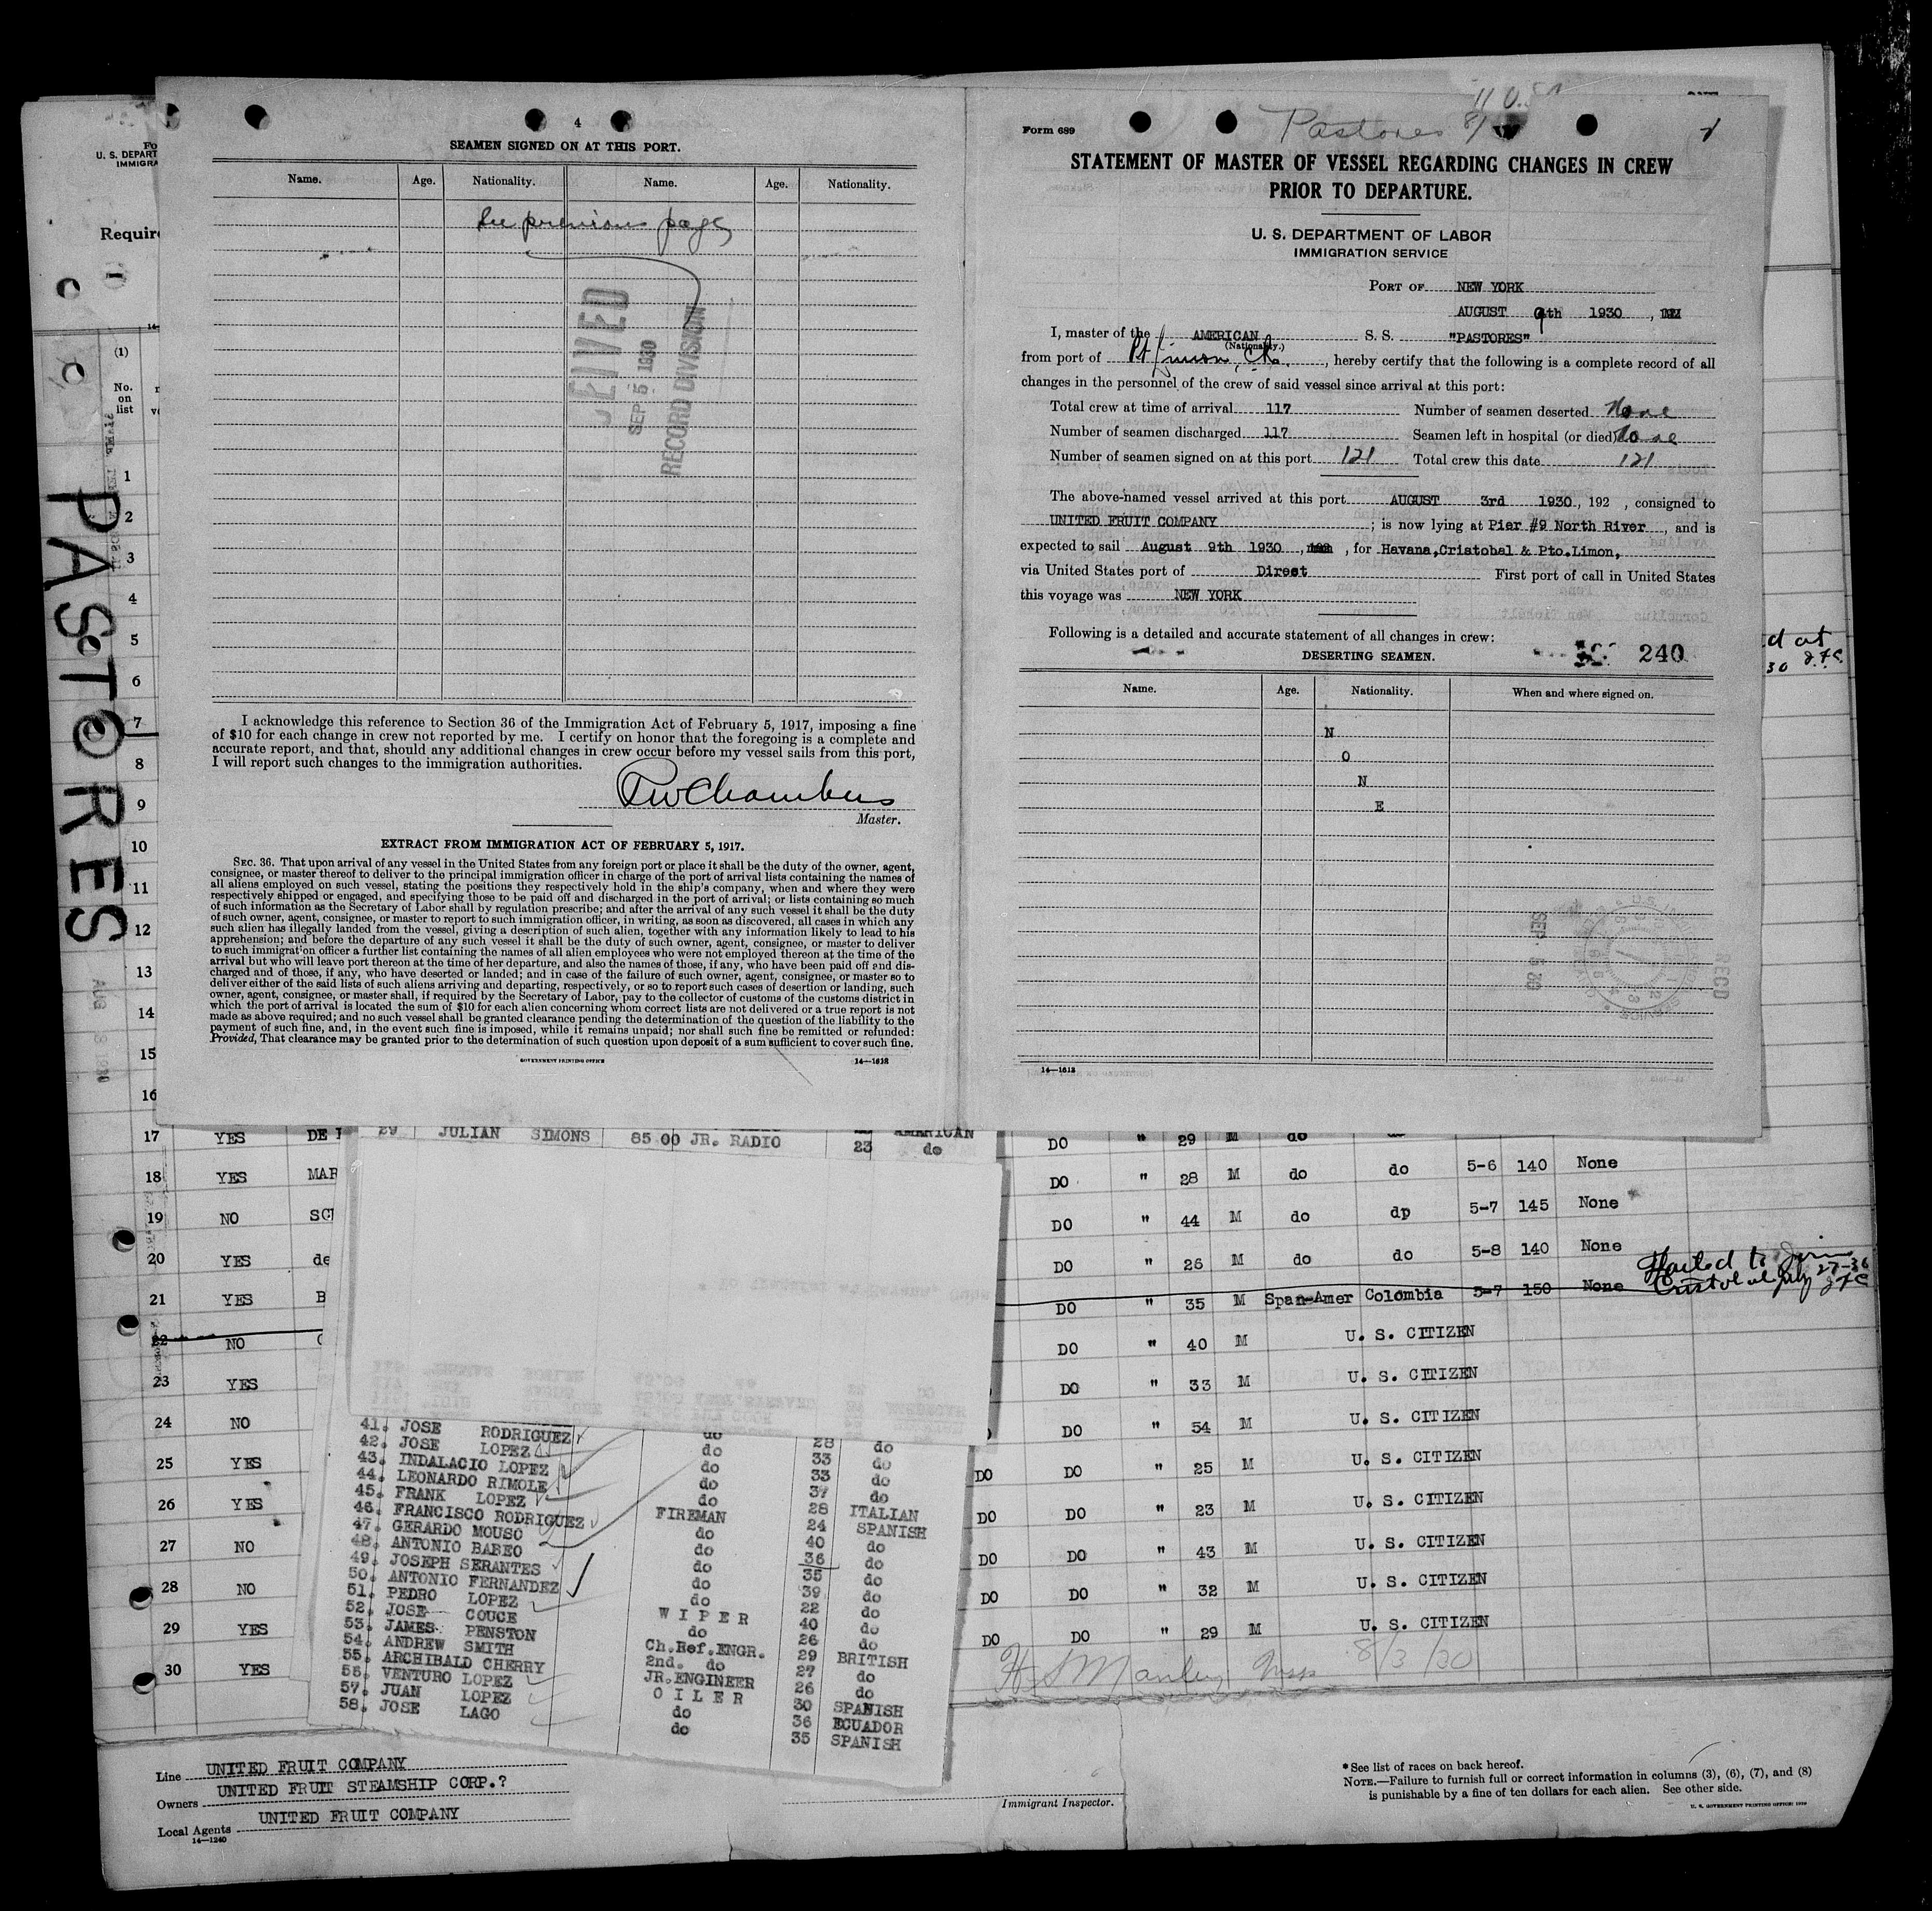 4
SEAMEN SIGNED ON AT THIS PORT.
Name. Age. Nationality. Name. Age. Nationality.
See previous page
SEP 5 1930
RECORD DIVISION
I acknowledge this reference to Section 36 of the Immigration Act of February 5, 1917, imposing a fine
of $10 for each change in crew not reported by me. I certify on honor that the foregoing is a complete and
accurate report, and that, should any additional changes in crew occur before my vessel sails from this port,
I will report such changes to the immigration authorities.
Chambers
Master.
EXTRACT FROM IMMIGRATION ACT OF FEBRUARY 5, 1917.
SEC. 36. That upon arrival of any vessel in the United States from any foreign port or place it shall be the duty of the owner, agent,
consignee, or master thereof to deliver to the principal immigration officer in charge of the port of arrival lists containing the names of
all aliens employed on such vessel, stating the positions they respectively hold in the ship's company, when and where they were
respectively shipped or engaged, and specifying those to be paid off and discharged in the port of arrival; or lists containing so much
of such information as the Secretary of Labor shall by regulation prescribe; and after the arrival of any such vessel it shall be the duty
of such owner, agent, consignee, or master to report to such immigration officer, in writing, as soon as discovered, all cases in which any
such alien has illegally landed from the vessel, giving a description of such alien, together with any information likely to lead to his
apprehension; and before the departure of any such vessel it shall be the duty of such owner, agent, consignee, or master to deliver
to such immigration officer a further list containing the names of all alien employees who were not employed thereon at the time of the
arrival but who will leave port thereon at the time of her departure, and also the names of those, if any, who have been paid off and dis-
charged and of those, if any, who have deserted or landed; and in case of the failure of such owner, agent, consignee, or master so to
deliver either of the said lists of such aliens arriving and departing, respectively, or so to report such cases of desertion or landing, such
owner, agent, consignee, or master shall, if required by the Secretary of Labor, pay to the collector of customs of the customs district in
which the port of arrival is located the sum of $10 for each alien concerning whom correct lists are not delivered or a true report is not
made as above required; and no such vessel shall be granted clearance pending the determination of the question of the liability to the
payment of such fine, and, in the event such fine is imposed, while it remains unpaid; nor shall such fine be remitted or refunded:
Provided, That clearance may be granted prior to the determination of such question upon deposit of a sum sufficient to cover such fine.
GOVERNMENT PRINTING OFFICE 14—1613
Form 689
Pastores
STATEMENT OF MASTER OF VESSEL REGARDING CHANGES IN CREW
PRIOR TO DEPARTURE.
U. S. DEPARTMENT OF LABOR
IMMIGRATION SERVICE
PORT OF NEW YORK
AUGUST 9th 1930
I, master of the AMERICAN S. S. "PASTORES"
(Nationality.)
from port of Pt Limon, C.R., hereby certify that the following is a complete record of all
changes in the personnel of the crew of said vessel since arrival at this port:
Total crew at time of arrival 117 Number of seamen deserted None
Number of seamen discharged 117 Seamen left in hospital (or died) None
Number of seamen signed on at this port 121 Total crew this date 121
The above-named vessel arrived at this port AUGUST 3rd 1930, 192 , consigned to
UNITED FRUIT COMPANY ; is now lying at Pier #9 North River, and is
expected to sail August 9th 1930, for Havana,Cristobal & Pto.Limon,
via United States port of Direct First port of call in United States
this voyage was NEW YORK
Following is a detailed and accurate statement of all changes in crew:
240
DESERTING SEAMEN.
Name. Age. Nationality. When and where signed on.
N
O
N
E
SEP. 5 30
REC'D
14—1613
U. S. DEPART
IMMIGRA
Requir
(1)
No.
on
list
PASTORES
AUG 8 1930
1
2
3
4
5
6
7
8
9
10
11
12
13
14
15
16
17 YES DE
18 YES MAR
19 NO
20 YES de
21 YES B
22 NO
23 YES
24 NO
25 YES
26 YES
27 NO
28 NO
29 YES
30 YES
29 JULIAN SIMONS 85 00 JR. RADIO 23 do
AMERICAN
41. JOSE RODRIGUEZ do 28 do
42. JOSE LOPEZ do 33 do
43. INDALACIO LOPEZ do 33 do
44. LEONARDO RIMOLE do 37 do
45. FRANK LOPEZ FIREMAN 28 ITALIAN
46. FRANCISCO RODRIGUEZ do 24 SPANISH
47. GERARDO MOUSO do 40 do
48. ANTONIO BABEO do 36 do
49. JOSEPH SERANTES do 35 do
50. ANTONIO FERNANDEZ do 39 do
51. PEDRO LOPEZ WIPER 22 do
52. JOSE COUCE do 40 do
53. JAMES PENSTON Ch.Ref.ENGR. 26 do
54. ANDREW SMITH 2nd. do 29 BRITISH
55. ARCHIBALD CHERRY JR.ENGINEER 27 do
56. VENTURO LOPEZ OILER 26 do
57. JUAN LOPEZ do 30 SPANISH
58. JOSE LAGO do 36 ECUADOR
35 SPANISH
DO " 29 M do do
DO " 28 M do do 5-6 140 None
DO " 44 M do dp 5-7 145 None
DO " 26 M do do 5-8 140 None
DO " 35 M Span-Amer Colombia 5-7 150 None
Failed to join
Cristobal July 27-30
DO " 40 M U. S. CITIZEN
DO " 33 M U. S. CITIZEN
DO " 54 M U. S. CITIZEN
DO DO " 25 M U. S. CITIZEN
DO DO " 23 M U. S. CITIZEN
DO DO " 43 M U. S. CITIZEN
DO DO " 32 M U. S. CITIZEN
DO DO " 29 M U. S. CITIZEN
8/3/30
Line UNITED FRUIT COMPANY
Owners UNITED FRUIT STEAMSHIP CORP.?
Local Agents UNITED FRUIT COMPANY
14—1240
Immigrant Inspector.
*See list of races on back hereof.
NOTE.—Failure to furnish full or correct information in columns (3), (6), (7), and (8)
is punishable by a fine of ten dollars for each alien. See other side.
U. S. GOVERNMENT PRINTING OFFICE: 1929